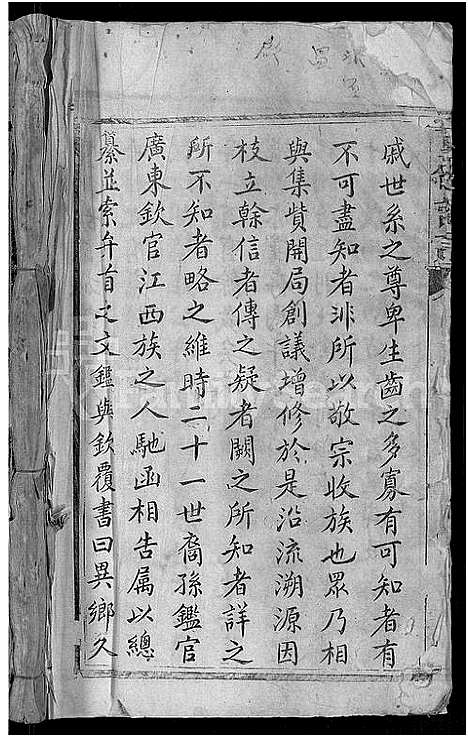 戚世系之尊卑生齒之多寡有可知者有
不可盡知者非所以敬宗收族也眾乃相
與集貲開局創議增修於是沿流溯源因
枝立榦信者傳之疑者闕之所知者詳之
所不知者略之維時二十一世裔孫鑑官
廣東欽官江西族之人馳函相告属以總
纂並索弁首之文鑑與欽覆書曰異鄉久